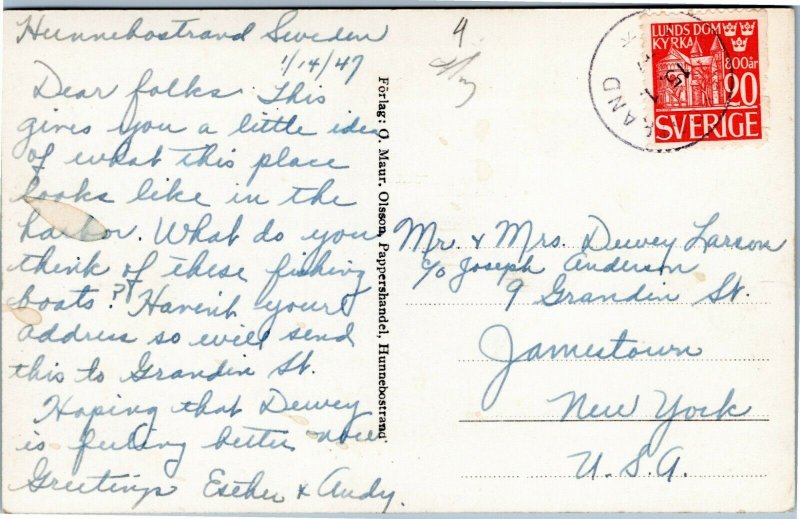 Hunnebostrand Sweden
1/14/47
Dear folks: This
gives you a little idea
of what this place
looks like in the
harbor. What do you
think of these fishing
boats? Haven't your
address so will send
this to Grandin St.
Hoping that Dewey
is feeling better now
Greetings Esther & Andy.
Förlag: O. Maur. Olsson, Pappershandel, Hunnebostrand
4
RAND
LUNDS DOM
KYRKA
800 år
20
SVERIGE
Mr. & Mrs. Dewey Larson
c/o Joseph Anderson
9 Grandin St.
Jamestown
New York
U.S.A.